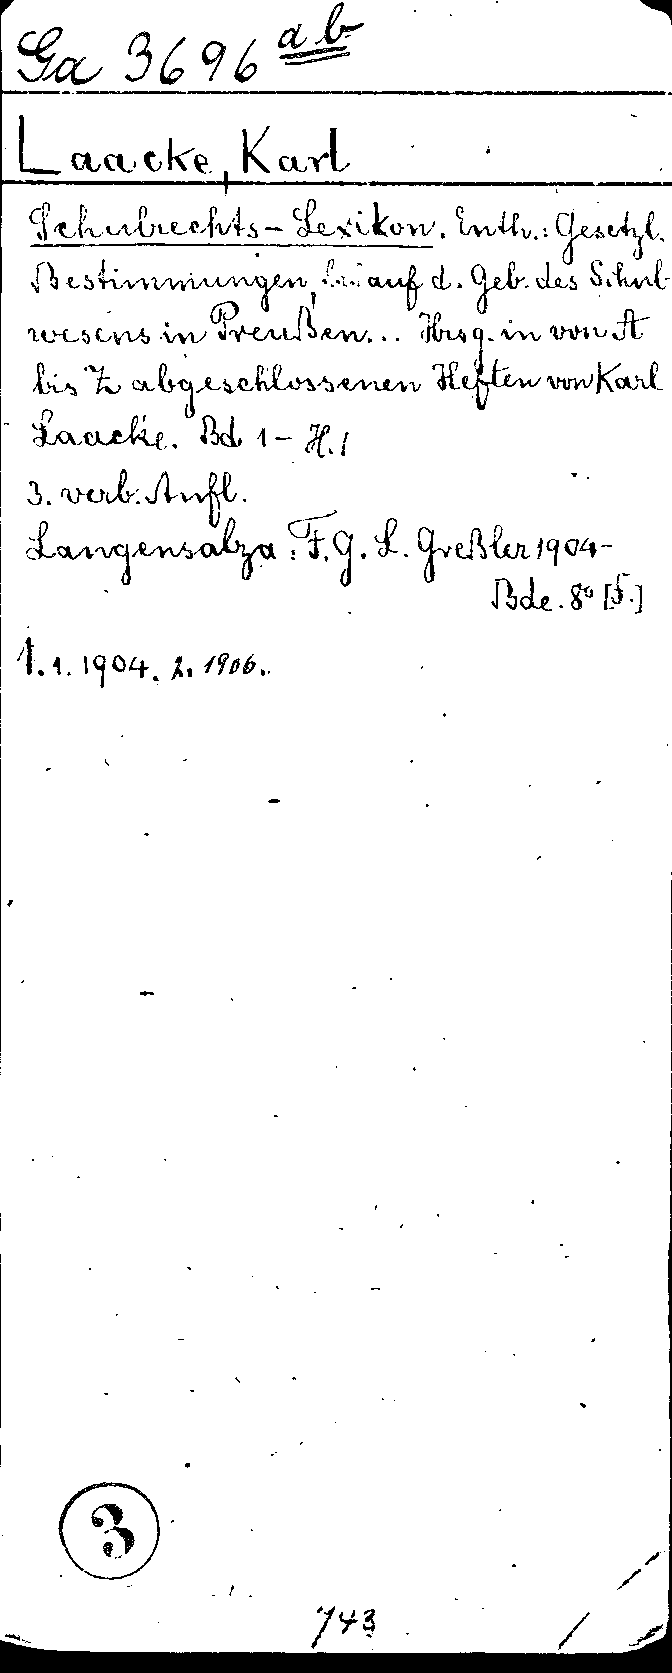 Ga 3696 ab
Laacke, Karl
Schulrechts-Lexikon. Enth.: Gesetzl.
Bestimmungen, auf d. Geb. des Schul-
wesens in Preußen... Hrsg. in von A
bis Z abgeschlossenen Heften von Karl
Laacke. Bd. 1- H.1
3. verb. Aufl.
Langensalza: F. G. L. Greßler 1904-
Bde. 8° [5.]
1.1.1904. 2. 1906.
3
743